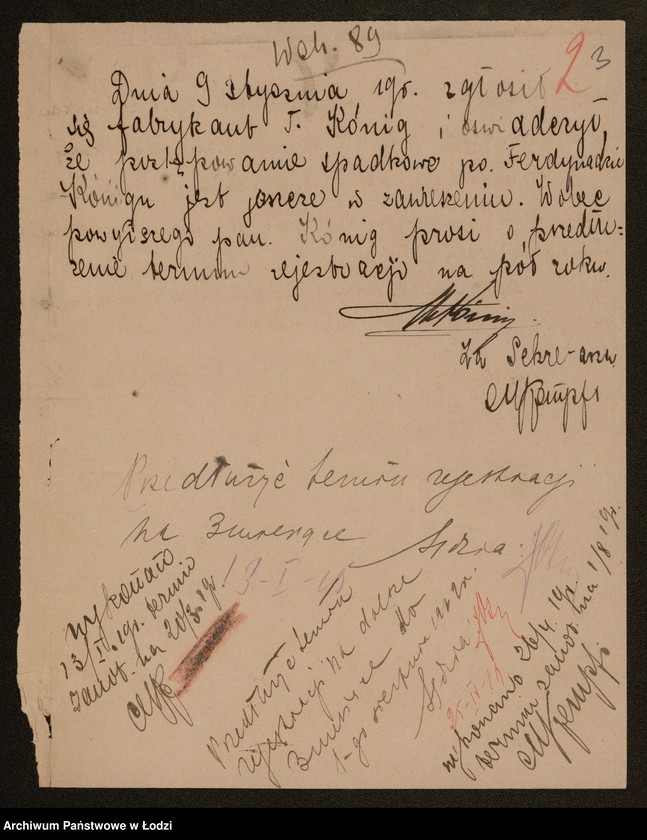 Wch. 89
2 3
Dnia 9 stycznia 19r. zgłosił
się fabrykant T. König i oświadczył,
że postępowanie spadkowe po Ferdynandzie
Königu jest jeszcze w zawieszeniu. Wobec
powyższego pan König prosi o przedłu-
żenie terminu rejestracji na pół roku.
Za Sekretarza
Przedłużyć termin rejestracji
na 3 miesiące
Sędzia
13-I-19
wykonano
13/II. 19r. termin
zanot. na 20/3. 19r.
Przedłużyć termin
rejestracji na dalsze
3 miesiące do
1-go sierpnia 1919r.
Sędzia
25-IV-19
wykonano 26/4. 19r.
termin zanot. na 1/8 19r.
Archiwum Państwowe w Łodzi